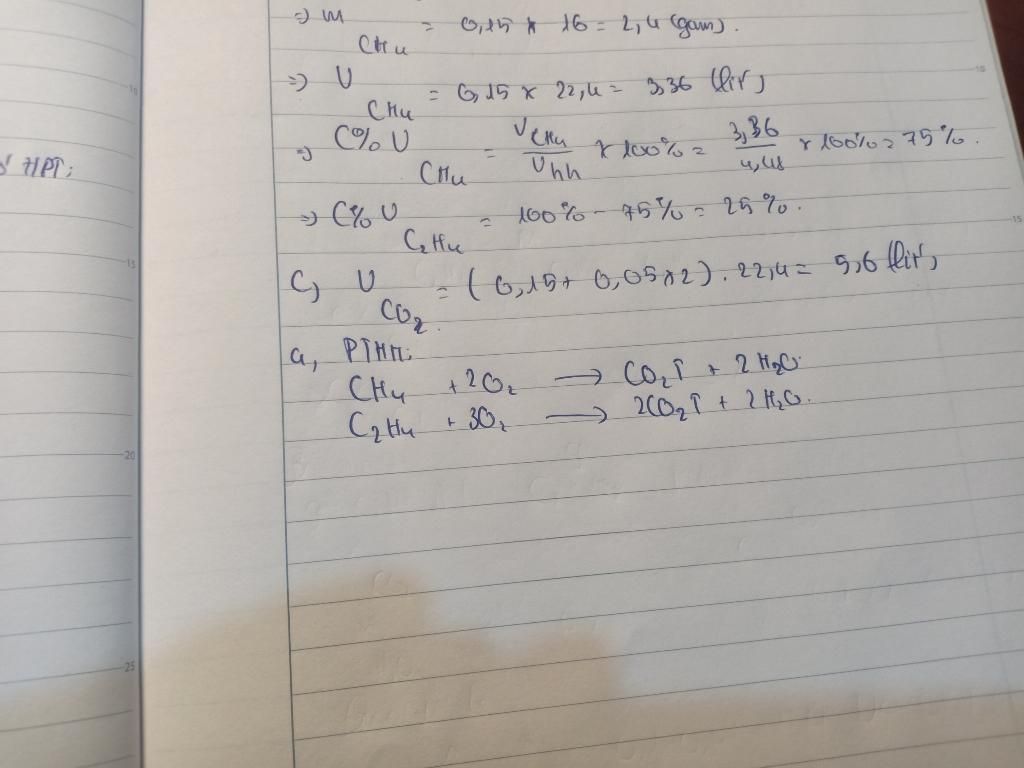 => m CH4 = 0,15 x 16 = 2,4 (gam).
=> V CH4 = 0,15 x 22,4 = 3,36 (lít)
=> C% V CH4 = VCH4/Vhh x 100% = 3,36/4,48 x 100% = 75%.
=> C% V C2H4 = 100% - 75% = 25%.
c, V CO2 = (0,15 + 0,05x2). 22,4 = 5,6 (lít)
a, PTHH:
CH4 + 2O2 → CO2↑ + 2H2O
C2H4 + 3O2 → 2CO2↑ + 2H2O.
HPT:
10
15
20
25
10
15